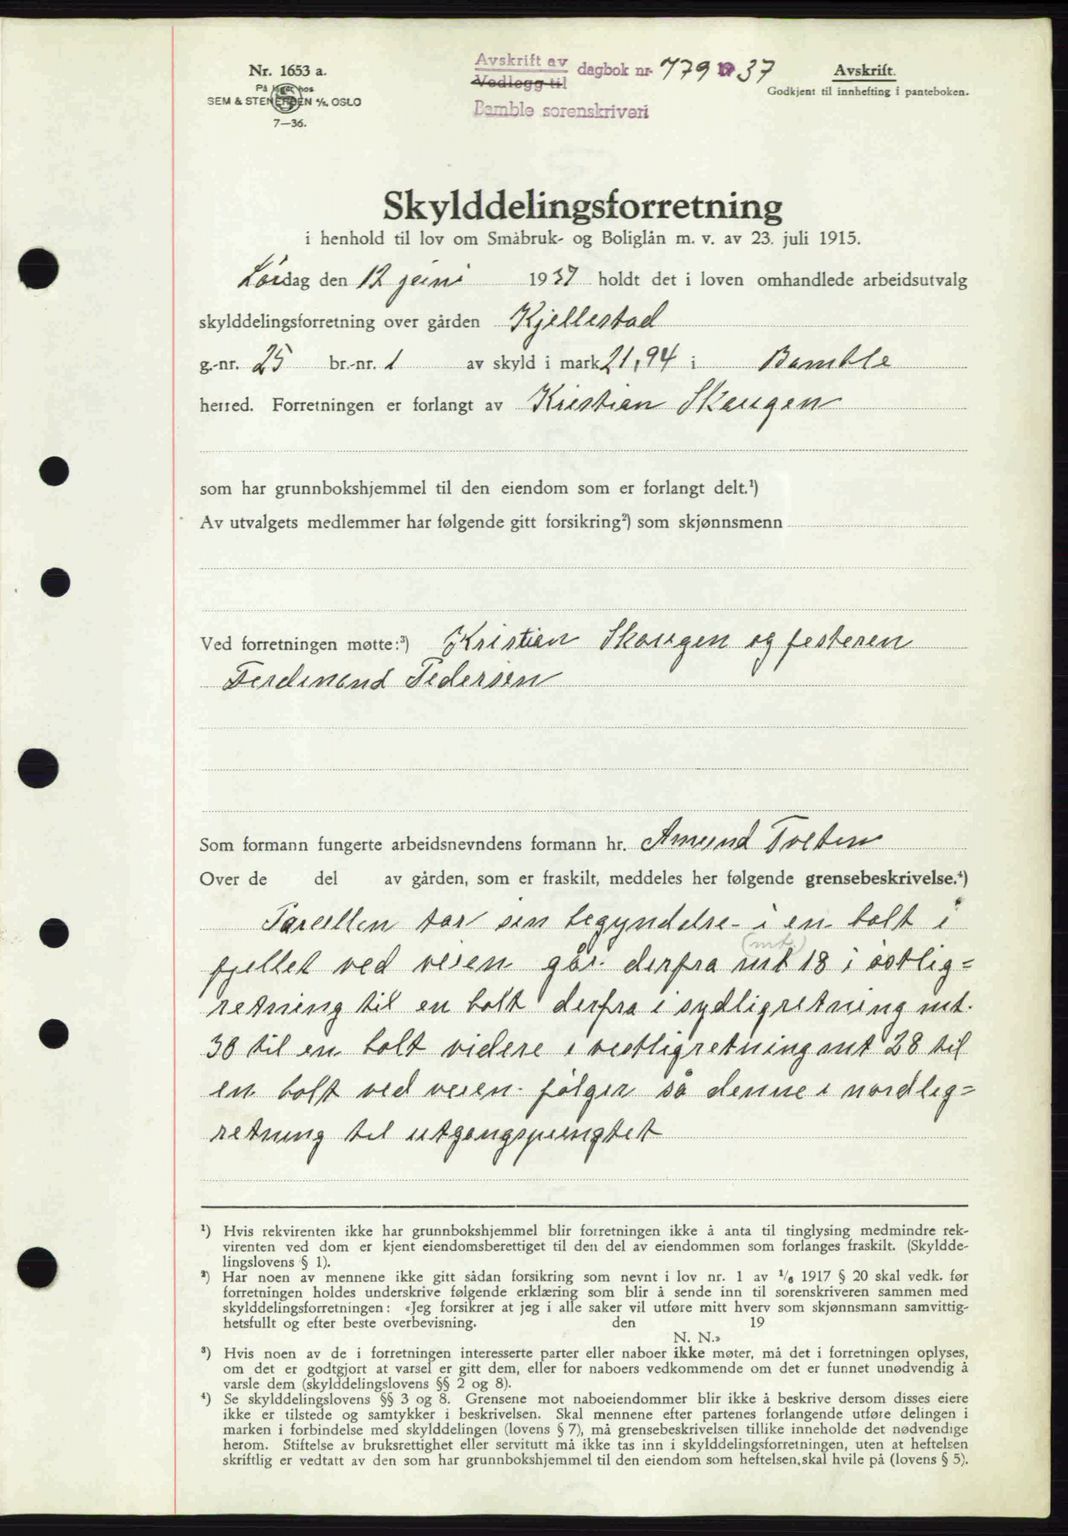 Nr. 1653 a.
På lager hos
SEM & STENERSEN A/S. OSLO
7—36.
Avskrift av
Vedlegg til
dagbok nr. 779 1937
Bamble sorenskriveri
Avskrift.
Godkjent til innhefting i panteboken.
Skylddelingsforretning
i henhold til lov om Småbruk- og Boliglån m. v. av 23. juli 1915.
Lørdag den 12 juni 1937 holdt det i loven omhandlede arbeidsutvalg
skylddelingsforretning over gården Kjellestad
g.-nr. 25 br.-nr. 1 av skyld i mark 21,94 i Bamble
herred. Forretningen er forlangt av Kristian Skaugen
som har grunnbokshjemmel til den eiendom som er forlangt delt.¹)
Av utvalgets medlemmer har følgende gitt forsikring²) som skjønnsmenn
Ved forretningen møtte:³) Kristian Skaugen og festeren
Ferdinand Pedersen
Som formann fungerte arbeidsnevndens formann hr. Amund Tveten
Over de del av gården, som er fraskilt, meddeles her følgende grensebeskrivelse.⁴)
Parcellen tar sin begyndelse i en bolt i
fjellet ved veien går derfra mt (mt) 18 i østlig=
retning til en bolt derfra i sydligretning mt.
30 til en bolt videre i vestligretning mt 28 til
en bolt ved veien følger så denne i nordlig=
retning til utgangspungtet
¹) Hvis rekvirenten ikke har grunnbokshjemmel blir forretningen ikke å anta til tinglysing medmindre rek-
virenten ved dom er kjent eiendomsberettiget til den del av eiendommen som forlanges fraskilt. (Skyldde-
lingslovens § 1).
²) Har noen av mennene ikke gitt sådan forsikring som nevnt i lov nr. 1 av ¹/₆ 1917 § 20 skal vedk. før
forretningen holdes underskrive følgende erklæring som blir å sende inn til sorenskriveren sammen med
skylddelingsforretningen: «Jeg forsikrer at jeg i alle saker vil utføre mitt hverv som skjønnsmann samvittig-
hetsfullt og efter beste overbevisning. den 19
N. N.»
³) Hvis noen av de i forretningen interesserte parter eller naboer ikke møter, må det i forretningen oplyses,
om det er godtgjort at varsel er gitt dem, eller for naboers vedkommende om det er funnet unødvendig å
varsle dem (skylddelingslovens §§ 2 og 8).
⁴) Se skylddelingslovens §§ 3 og 8. Grensene mot naboeiendommer blir ikke å beskrive dersom disses eiere
ikke er tilstede og samtykker i beskrivelsen. Skal mennene efter partenes forlangende utføre delingen i
marken i forbindelse med skylddelingen (lovens § 7), må grensebeskrivelsen tillike inneholde det nødvendige
herom. Stiftelse av bruksrettighet eller servitutt må ikke tas inn i skylddelingsforretningen, uten at heftelsen
skriftlig er vedtatt av den som har grunnbokshjemmel til den eiendom som heftelsen, skal hvile på (lovens § 5).